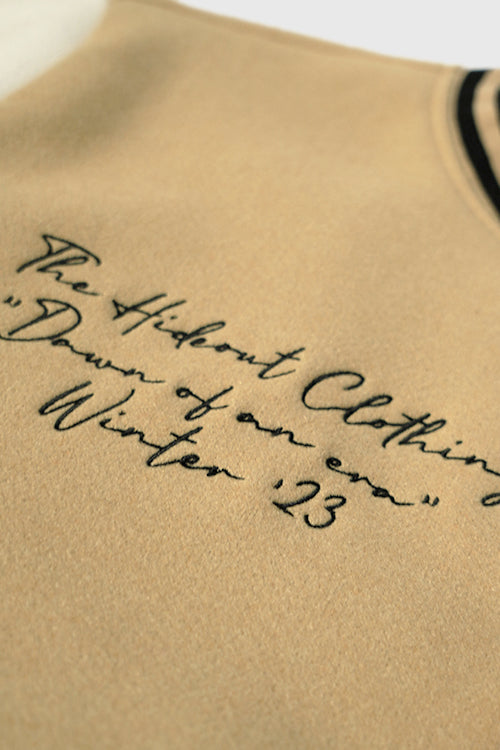 The Hideout Clothing
"Dawn of an era"
Winter '23